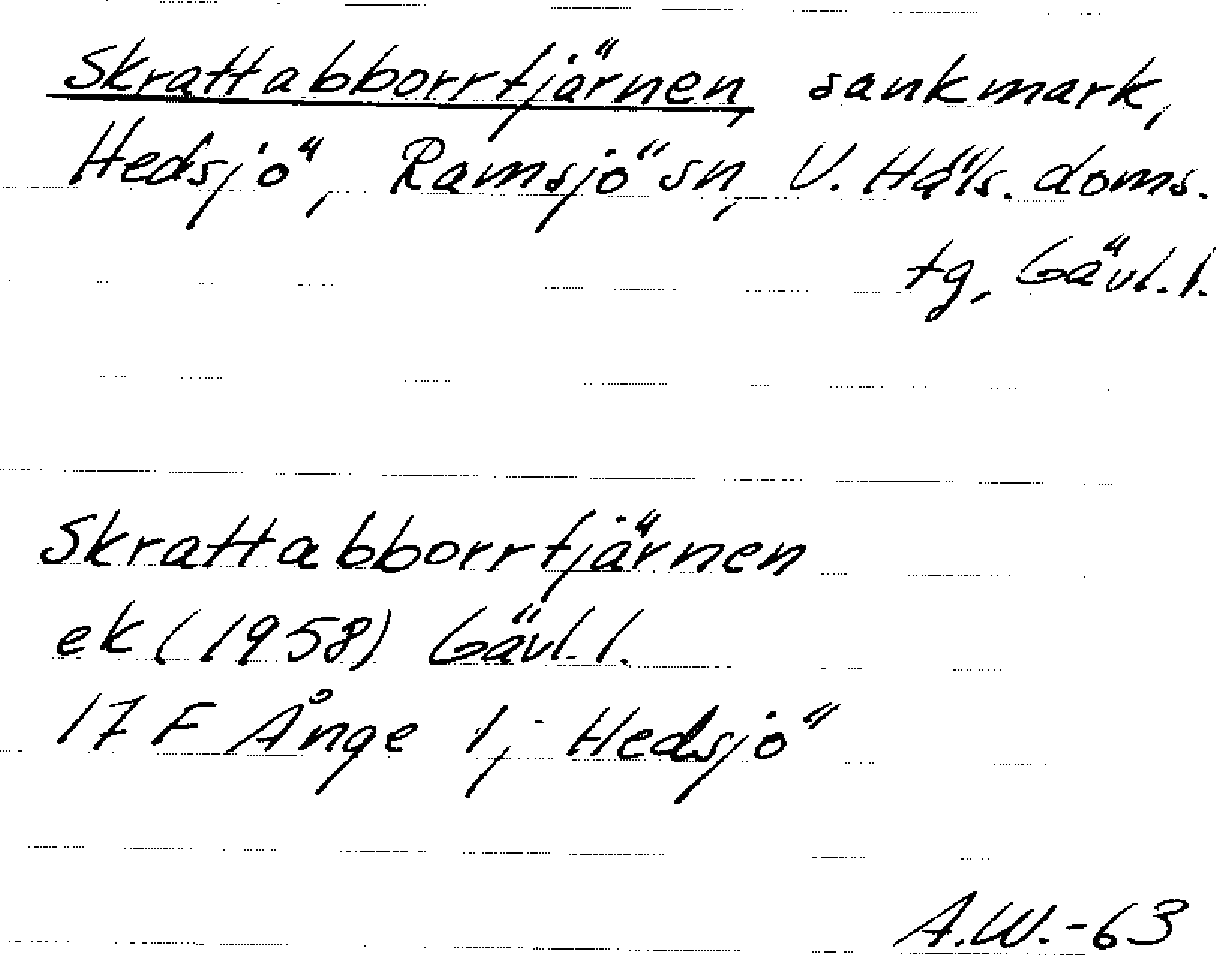 Skrattabborrtjärnen, sankmark,
Hedsjö, Ramsjö sn, V. Häls. doms.
tg, Gävl. l.
Skrattabborrtjärnen
ek (1958) Gävl. l.
17 F Ånge 1j Hedsjö
A.W.-63